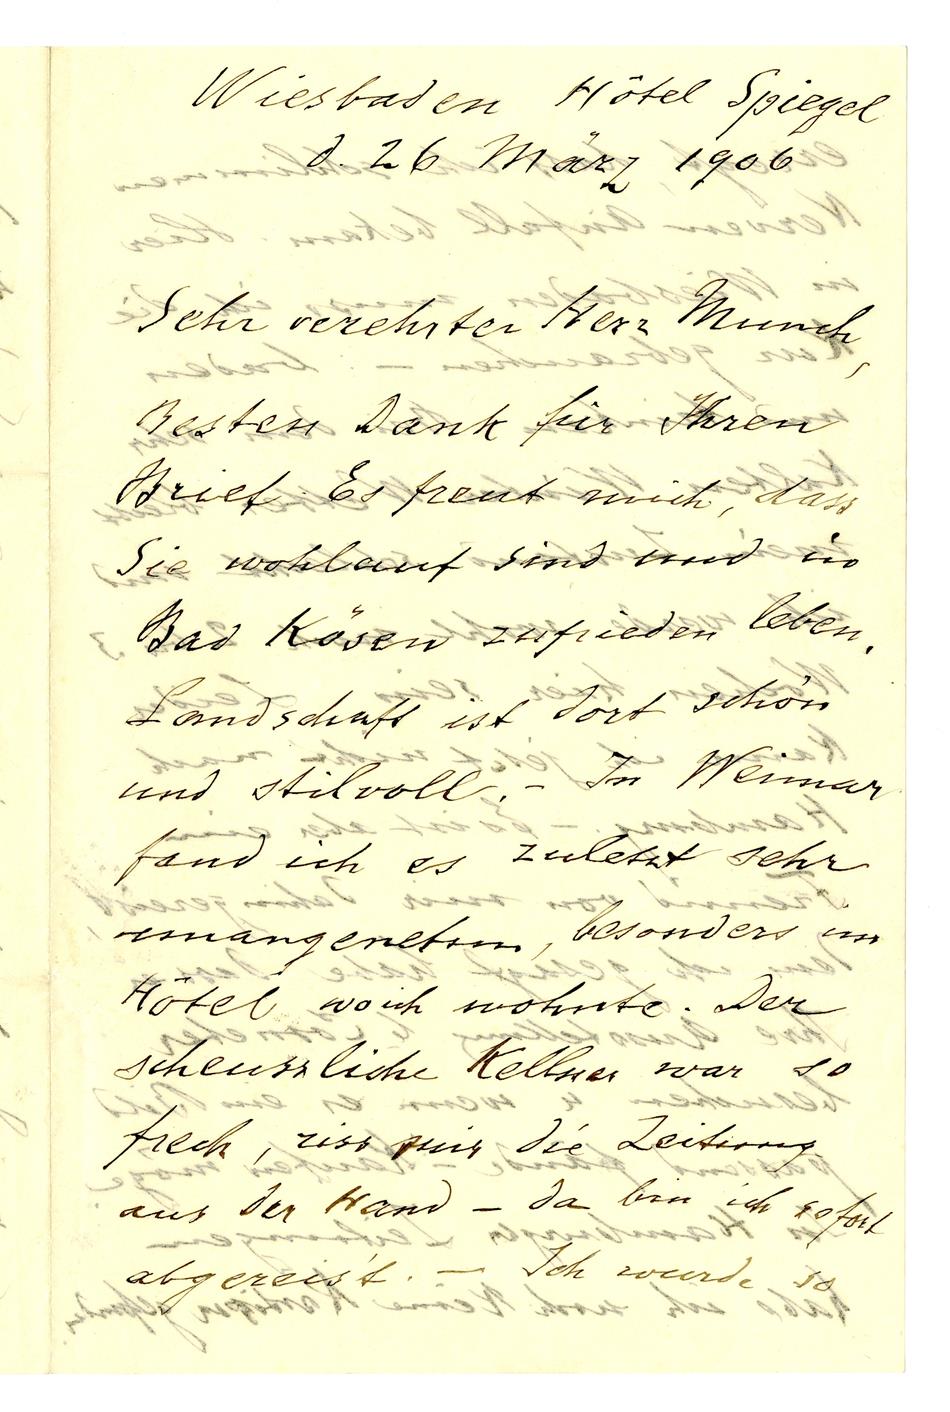 Wiesbaden Hôtel Spiegel
d. 26 März 1906
Sehr verehrter Herr Munch,
Besten Dank für Ihren
Brief. Es freut mich, dass
Sie wohlauf sind und in
Bad Kösen zufrieden leben.
Landschaft ist dort schön
und stilvoll. - In Weimar
fand ich es zuletzt sehr
unangenehm, besonders im
Hôtel wo ich wohnte. Der
scheussliche Kellner war so
frech, riss mir die Zeitung
aus der Hand - da bin ich sofort
abgereis't. - Ich wurde so